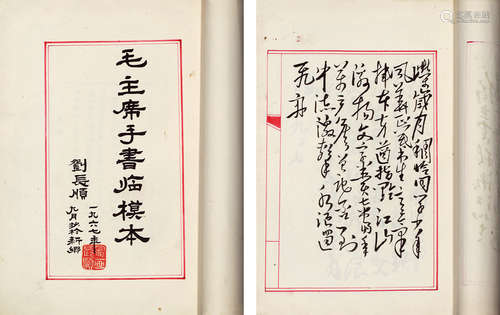 毛主席手書临模本
劉長順
一九六七年
九月於新鄉
嶸歲月稠恰同學少年
風華正茂書生意氣揮
斥方遒指點江山
激揚文字糞土當年
萬戶侯曾記否到
中流擊水浪遏
飛舟